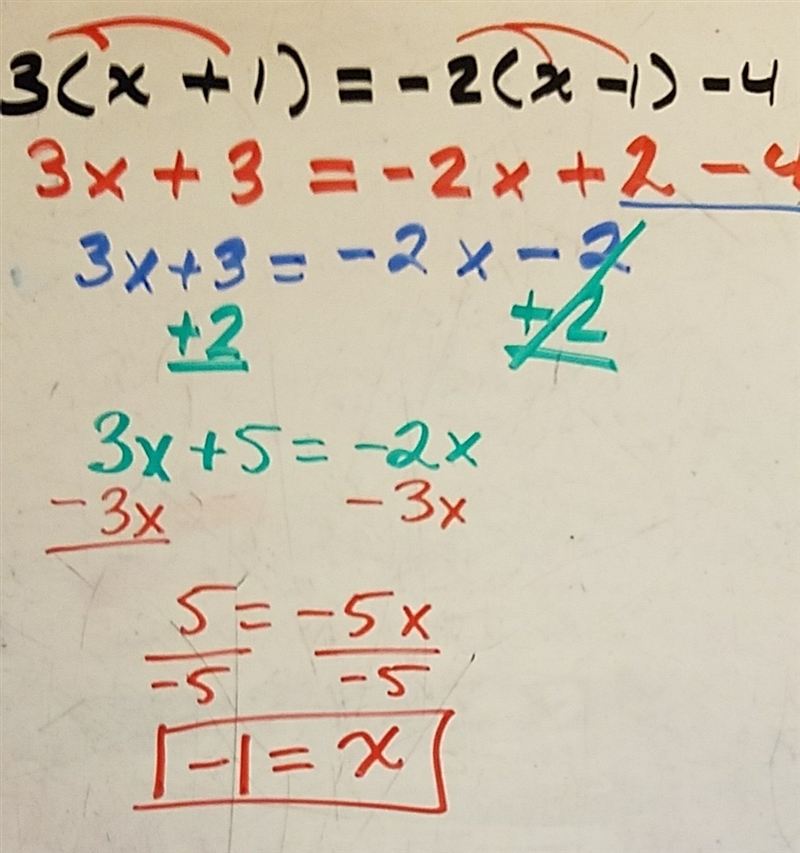 3(x + 1) = -2(x -1) -4
3x + 3 = -2x + 2 - 4
3x+3 = -2x - 2
+2 +2
3x+5 = -2x
-3x -3x
5 = -5x
-5 -5
-1 = x